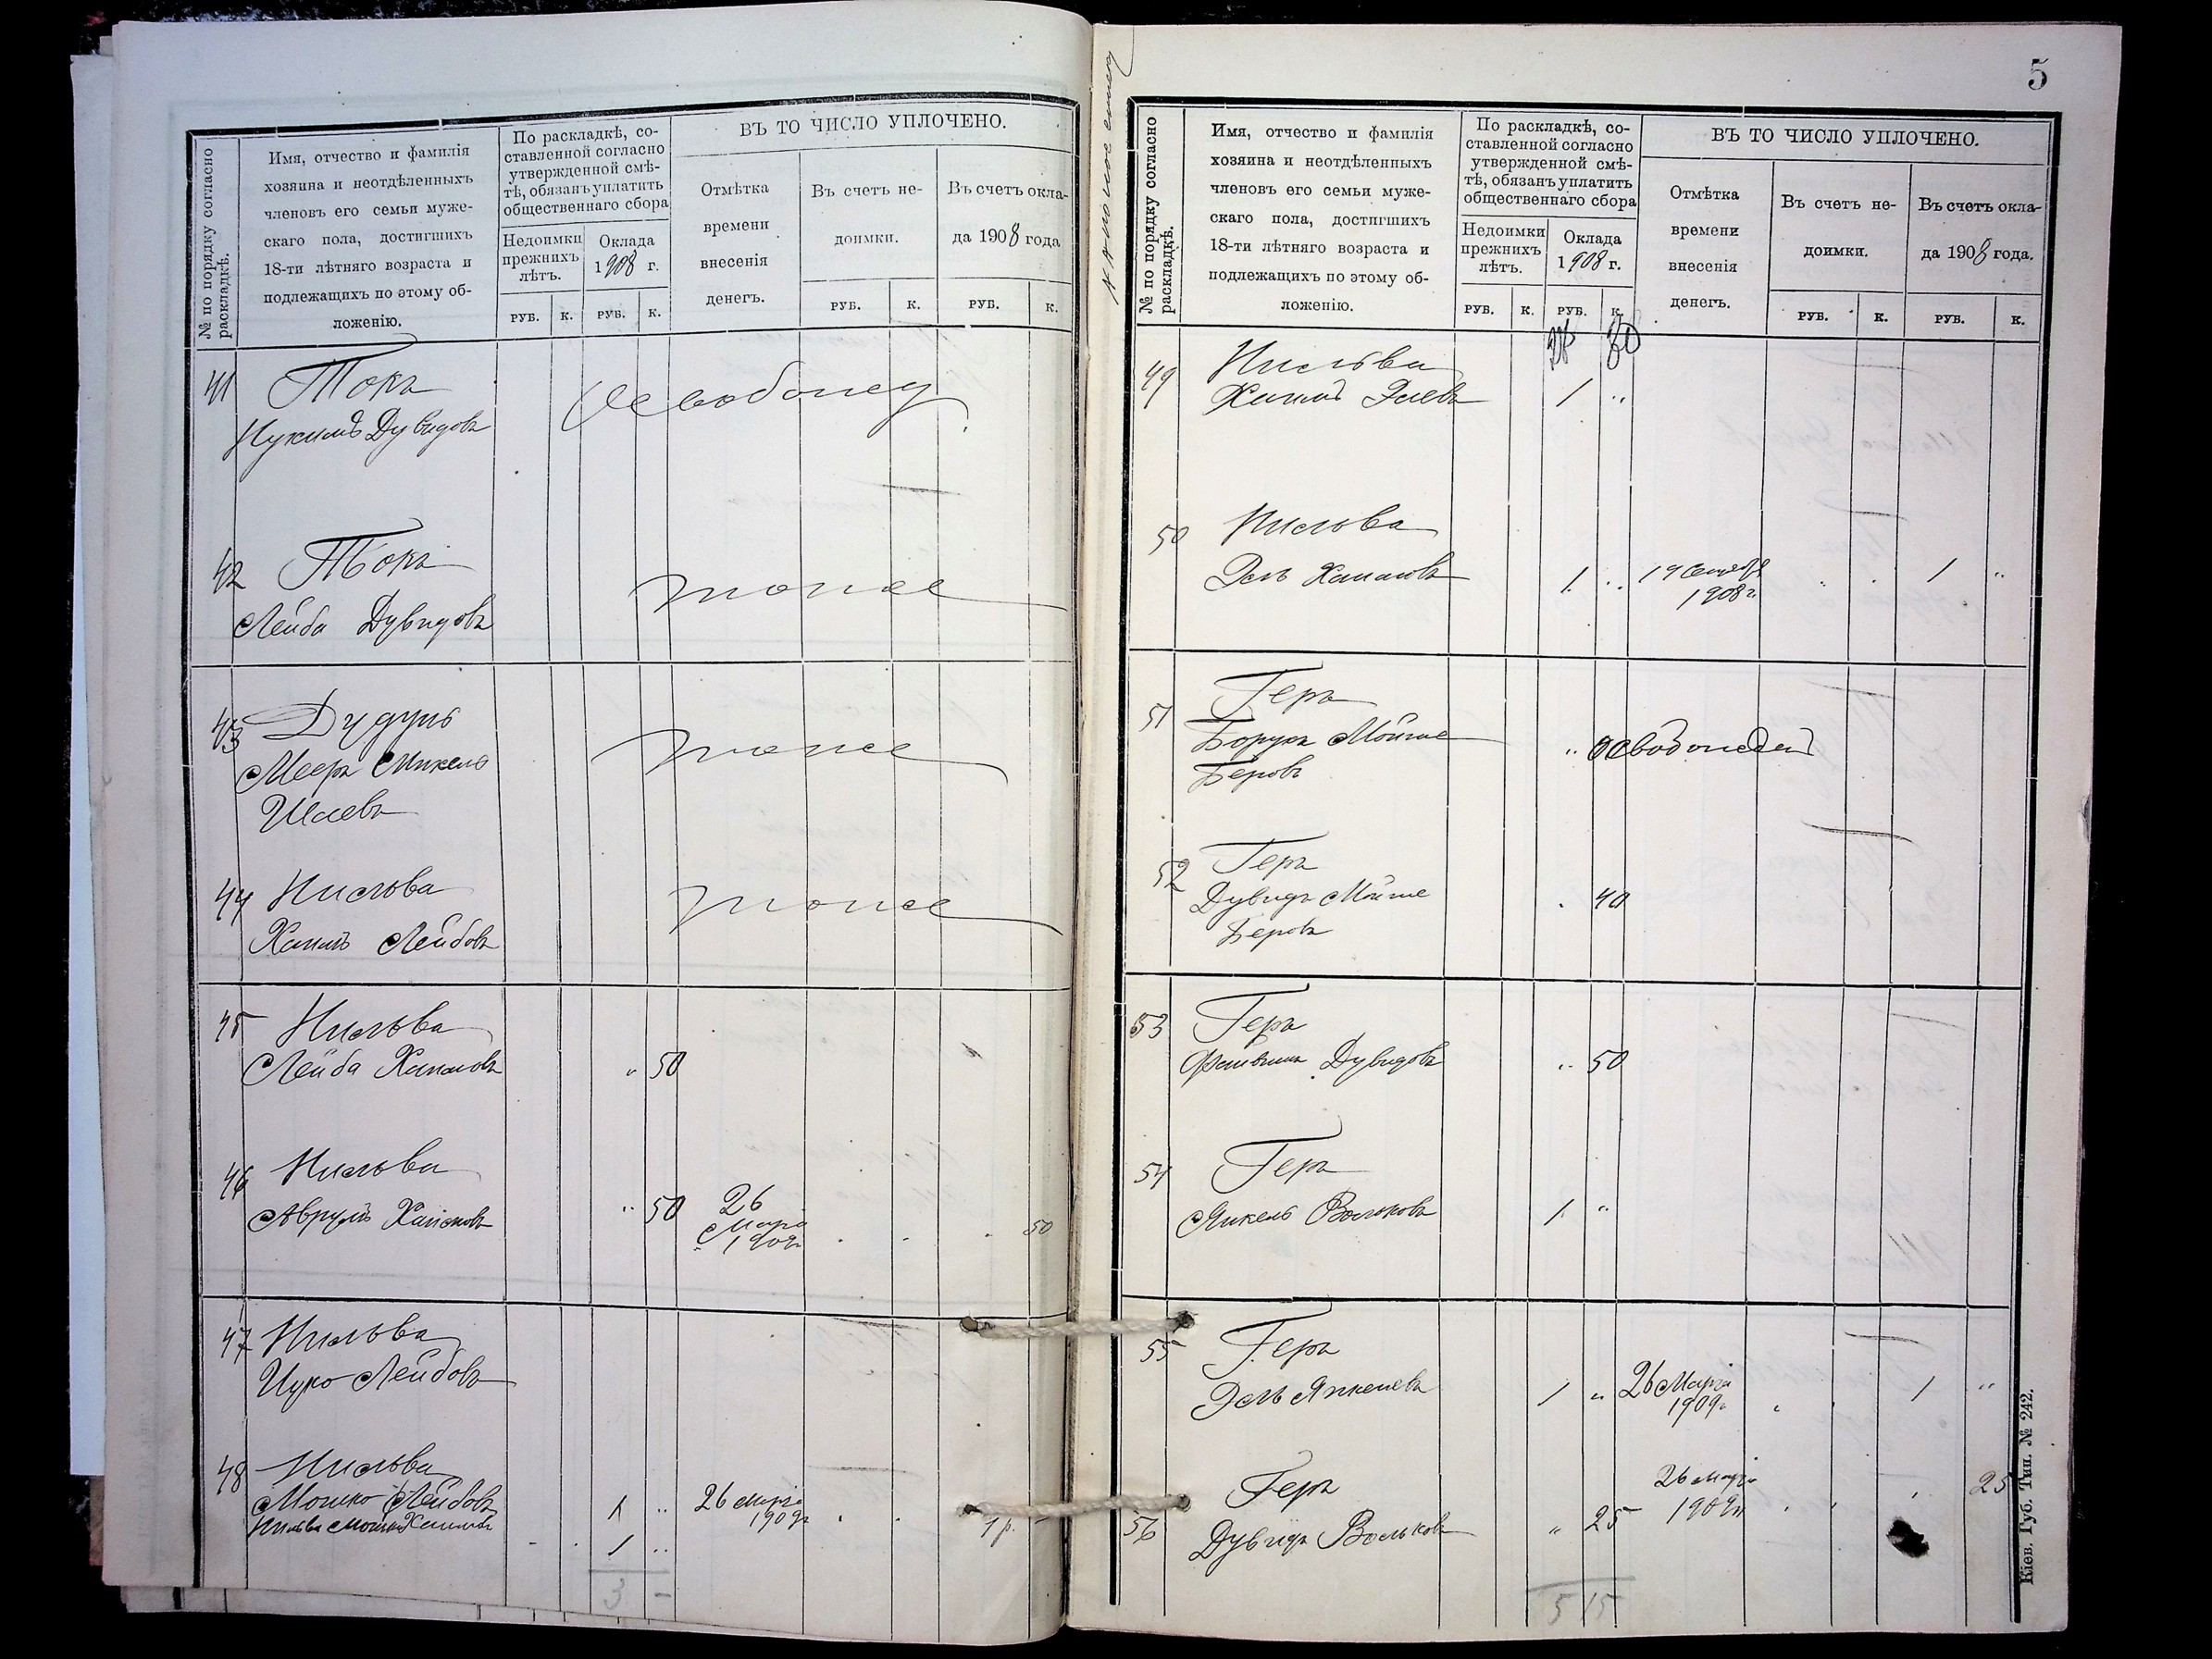 № по порядку согласно
раскладкѣ.
Имя, отчество и фамилія
хозяина и неотдѣленныхъ
членовъ его семьи муже-
скаго пола, достигшихъ
18-ти лѣтняго возраста и
подлежащихъ по этому об-
ложенію.
По раскладкѣ, со-
ставленной согласно
утвержденной смѣ-
тѣ, обязанъ уплатить
общественнаго сбора
Недоимки
прежнихъ
лѣтъ.
Оклада
1908 г.
РУБ. К. РУБ. К.
ВЪ ТО ЧИСЛО УПЛОЧЕНО.
Отмѣтка
времени
внесенія
денегъ.
Въ счетъ не-
доимки.
РУБ. К.
Въ счетъ окла-
да 1908 года
РУБ. К.
41 Токъ
Нухимъ Дувидовъ
42 Токъ
Лейба Дувидовъ
тоже
43 Дудуль
Мееръ Михель
Шаевъ
тоже
44 Нисльва
Хаимъ Лейбовъ
тоже
45 Нисльва
Лейба Хаимовъ
" 50
46 Нисльва
Аврумъ Хаимовъ
" 50 26
Марта
1909г. 50
47 Нисльва
Ицко Лейбовъ
48 Нисльва
Мошко Лейбовъ
1 " 26 Марта
1909г. 1 р. –
1 "
3 –
5
№ по порядку согласно
раскладкѣ.
Имя, отчество и фамилія
хозяина и неотдѣленныхъ
членовъ его семьи муже-
скаго пола, достигшихъ
18-ти лѣтняго возраста и
подлежащихъ по этому об-
ложенію.
По раскладкѣ, со-
ставленной согласно
утвержденной смѣ-
тѣ, обязанъ уплатить
общественнаго сбора
Недоимки
прежнихъ
лѣтъ.
Оклада
1908 г.
РУБ. К. РУБ. К.
ВЪ ТО ЧИСЛО УПЛОЧЕНО.
Отмѣтка
времени
внесенія
денегъ.
Въ счетъ не-
доимки.
РУБ. К.
Въ счетъ окла-
да 1908 года.
РУБ. К.
49 Нисльва
Хаимъ Элевъ
1 "
50 Нисльва
Эль Хаимовъ
1 " 19 Сентября
1908г. 1 "
51 Геръ
Борухъ Мойше
Беровъ
" освобожденъ
52 Геръ
Дувидъ Мойше
Беровъ
. 40
53 Геръ
Файвишъ Дувидовъ
" 50
54 Геръ
Янкель Вольковъ
1 "
55 Геръ
Эль Янкелевъ
1 " 26 Марта
1909г. 1 "
56 Геръ
Дувидъ Вольковъ
" 25 26 Марта
1909г. 25
5 15
Кіев. Губ. Тип. № 242.